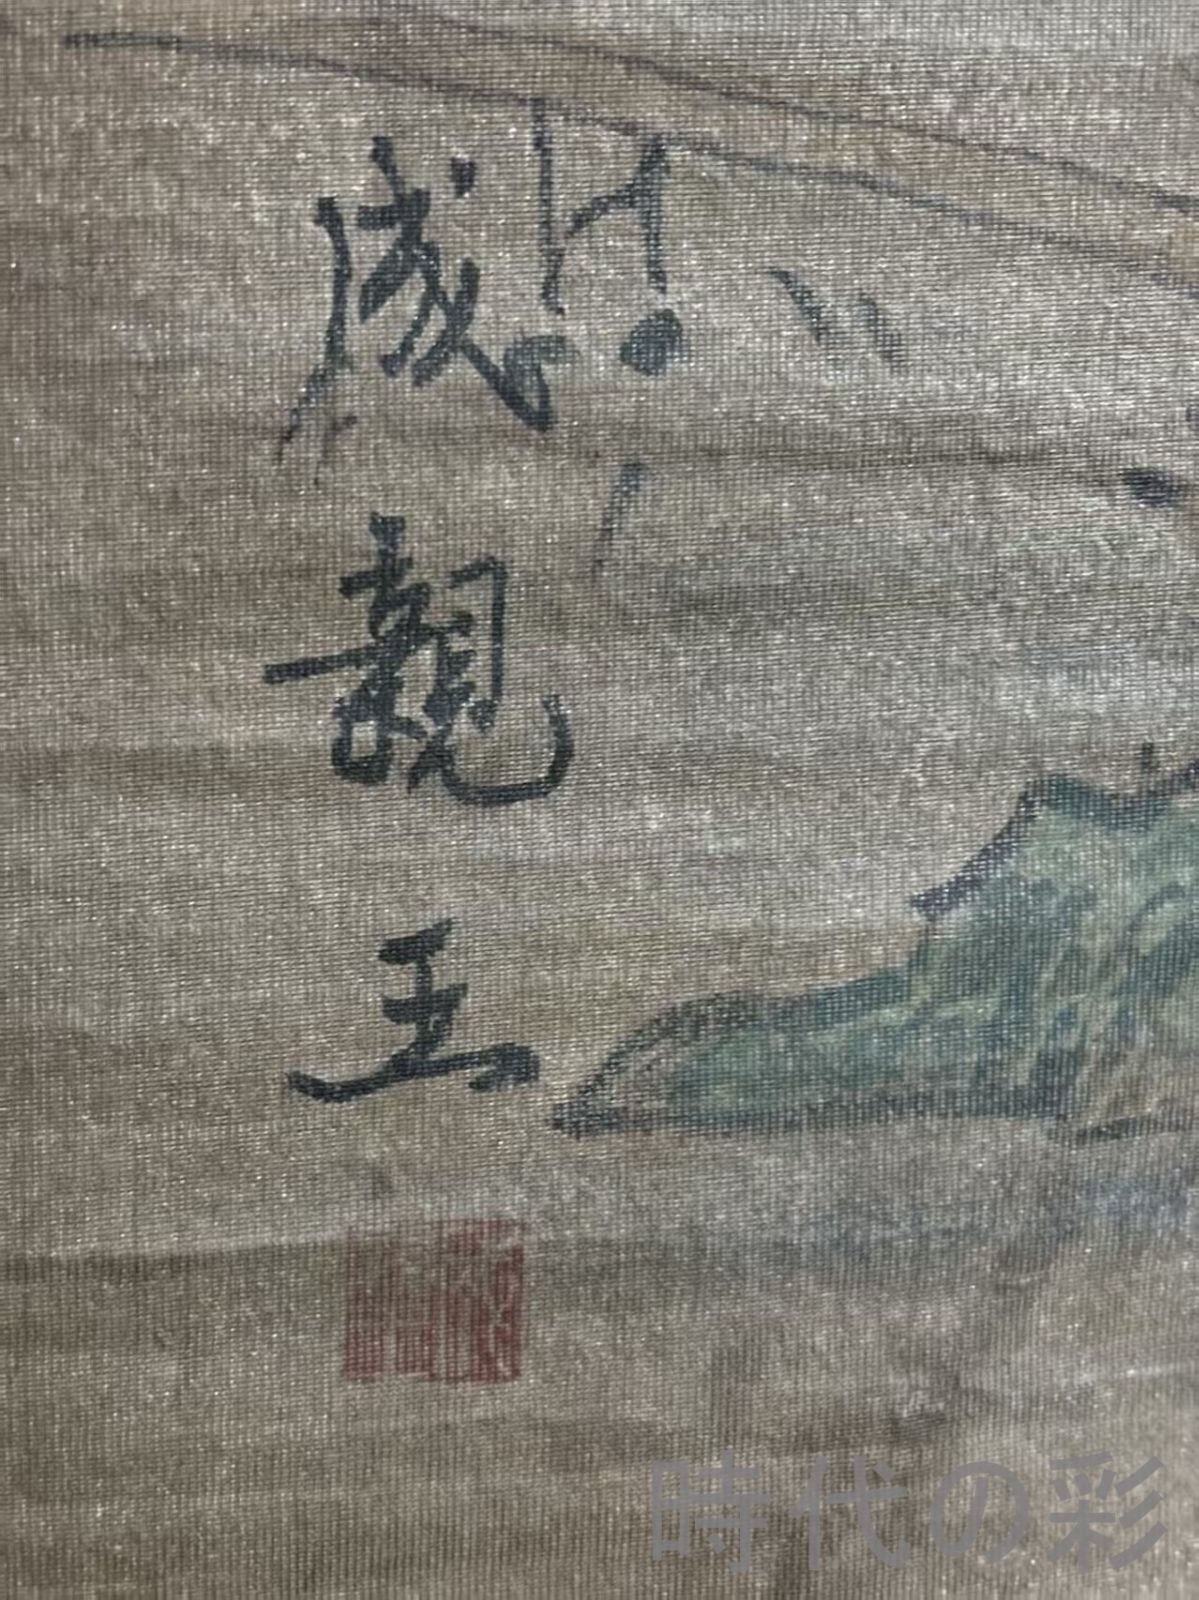 成親王
時代の彩